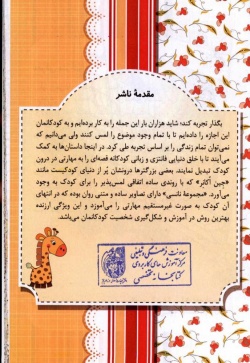 مقدمهٔ ناشر
بگذار تجربه کند؛ شاید هزاران بار این جمله را به کار برده‌ایم و به کودکانمان
این اجازه را داده‌ایم تا با تمام وجود موضوع را لمس کنند ولی می‌دانیم که
نمی‌توان تمام زندگی را بر اساس تجربه طی کرد. در اینجا داستان‌ها به کمک
می‌آیند تا با خلق دنیایی فانتزی و زبانی کودکانه قصه‌ای را به مهارتی در درون
کودک تبدیل نمایند. بعضی بزرگترها درونشان پُر از دنیای کودکیست مانند
«جین آکانر» که با روندی ساده اتفاقی لمس‌پذیر را برای کودک به وجود
می‌آورد. «مجموعهٔ نانسی» دارای تصاویر ساده و متنی روان بوده که در انتهای
آن کودک به صورت غیرمستقیم مهارتی را می‌آموزد و این ویژگی ارزنده
بهترین روش در آموزش و شکل‌گیری شخصیت کودکانمان می‌باشد.
معاونت فرهنگی و تبلیغی
مرکز آموزش های کاربردی
کتابخانه تخصصی